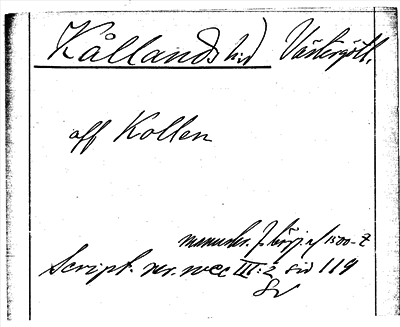 Kållands hd) Västergötl.
aff Kollen
manuskr. f. börj. af 1500-t
Script. rer. svec III:2 sid 119